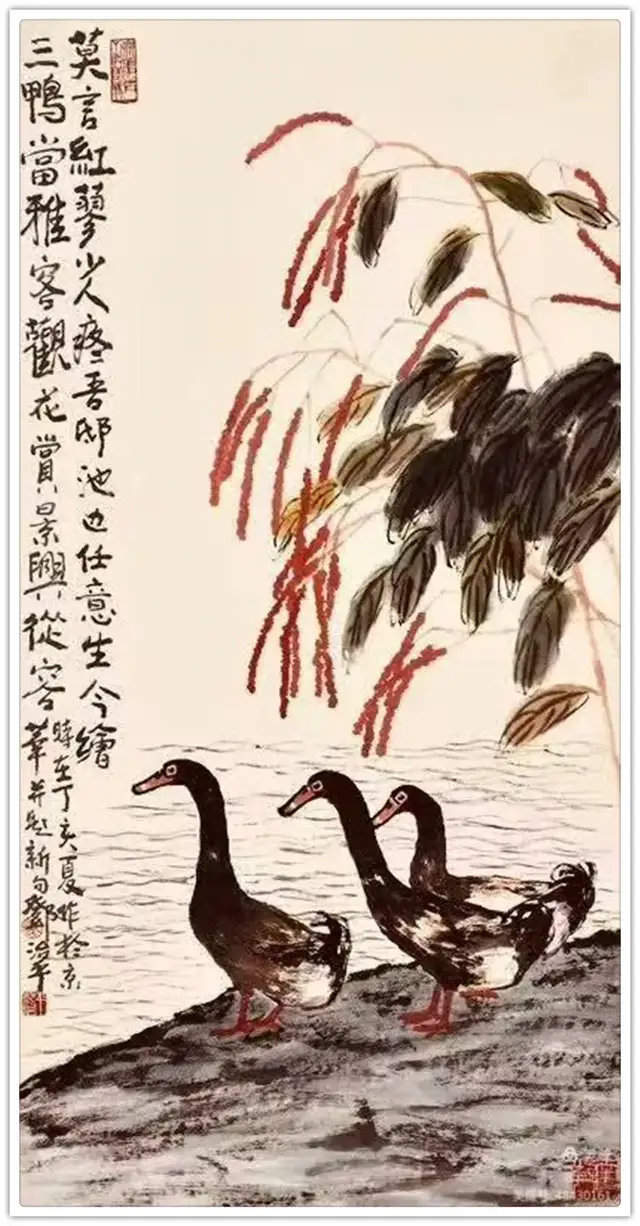 莫言紅蓼少人疼吾邸池边任意生今繪
三鴨當雅客觀花賞景興從容
時在丁亥夏作於京
華并題新句鄧
48430161